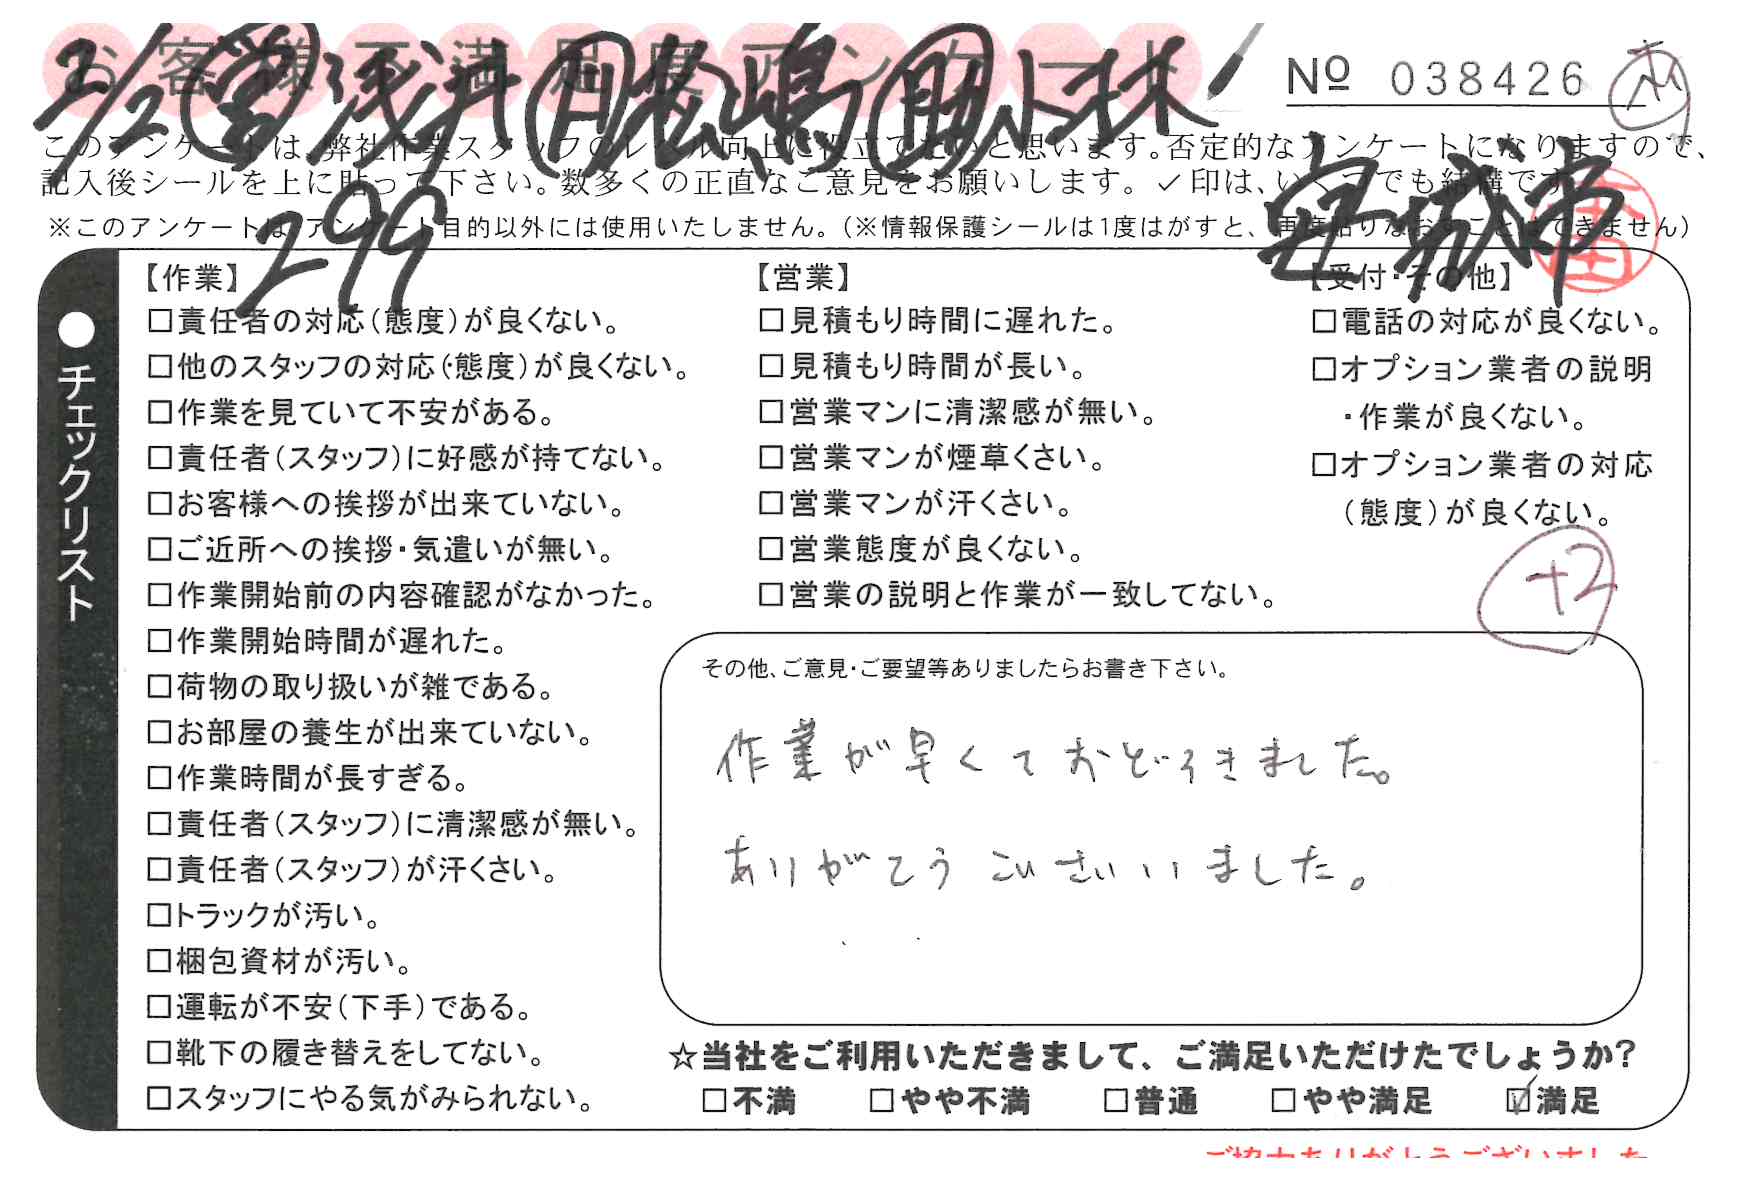 お客様不満足度アンケート
2/2 営 浅井 月 長嶋 助 小林
№ 038426
このアンケートは、弊社作業スタッフのレベル向上に役立てたいと思います。否定的なアンケートになりますので、
記入後シールを上に貼って下さい。数多くの正直なご意見をお願いします。✓印は、いくつでも結構です。
※このアンケートは、アンケート目的以外には使用いたしません。(※情報保護シールは1度はがすと、再度貼りなおすことはできません)
299
安城市
●チェックリスト
【作業】
□責任者の対応(態度)が良くない。
□他のスタッフの対応(態度)が良くない。
□作業を見ていて不安がある。
□責任者(スタッフ)に好感が持てない。
□お客様への挨拶が出来ていない。
□ご近所への挨拶・気遣いが無い。
□作業開始前の内容確認がなかった。
□作業開始時間が遅れた。
□荷物の取り扱いが雑である。
□お部屋の養生が出来ていない。
□作業時間が長すぎる。
□責任者(スタッフ)に清潔感が無い。
□責任者(スタッフ)が汗くさい。
□トラックが汚い。
□梱包資材が汚い。
□運転が不安(下手)である。
□靴下の履き替えをしてない。
□スタッフにやる気がみられない。
【営業】
□見積もり時間に遅れた。
□見積もり時間が長い。
□営業マンに清潔感が無い。
□営業マンが煙草くさい。
□営業マンが汗くさい。
□営業態度が良くない。
□営業の説明と作業が一致してない。
【受付・その他】
□電話の対応が良くない。
□オプション業者の説明
・作業が良くない。
□オプション業者の対応
(態度)が良くない。
+2
その他、ご意見・ご要望等ありましたらお書き下さい。
作業が早くておどろきました。
ありがとうございました。
☆当社をご利用いただきまして、ご満足いただけたでしょうか?
□不満 □やや不満 □普通 □やや満足 ☑満足
ご協力ありがとうございました